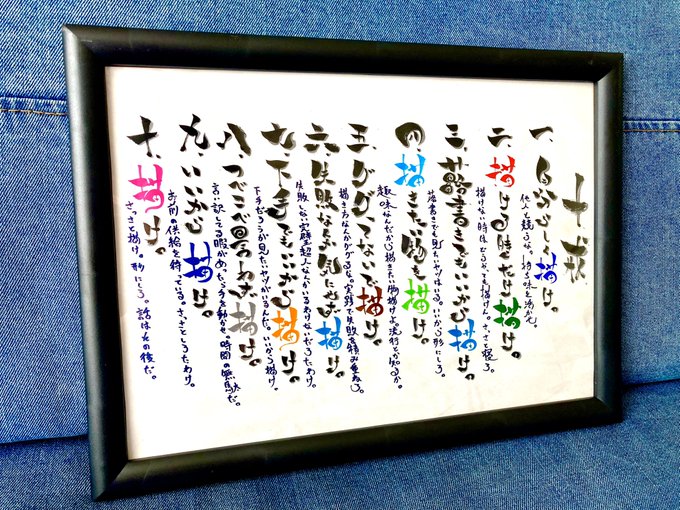 十戒
一、自分らしく描け。
他人と競うな。持ち味を活かせ。
二、描ける時だけ描け。
描けない時はどうやっても描けん。さっさと寝ろ。
三、落書きでもいいから描け。
落書きでも見たいヤツはいる。いいから形にしろ。
四、描きたい物を描け。
趣味なんだから描きたい物描けよ流行とか知るか。
五、ググってないで描け。
描き方なんかググるな。実戦で失敗を積み重ねろ。
六、失敗なんぞ気にせず描け。
失敗しない完璧超人なんかいるわけないだろうたわけ。
七、下手でもいいから描け。
下手だろうが見たいヤツがいるんだ。いいから描け。
八、つべこべ言わず描け。
言い訳してる暇があったら手を動かせ。時間の無駄だ。
九、いいから描け。
お前の供給を待っている。さっさとしろたわけ。
十、描け。
さっさと描け。形にしろ。話はその後だ。